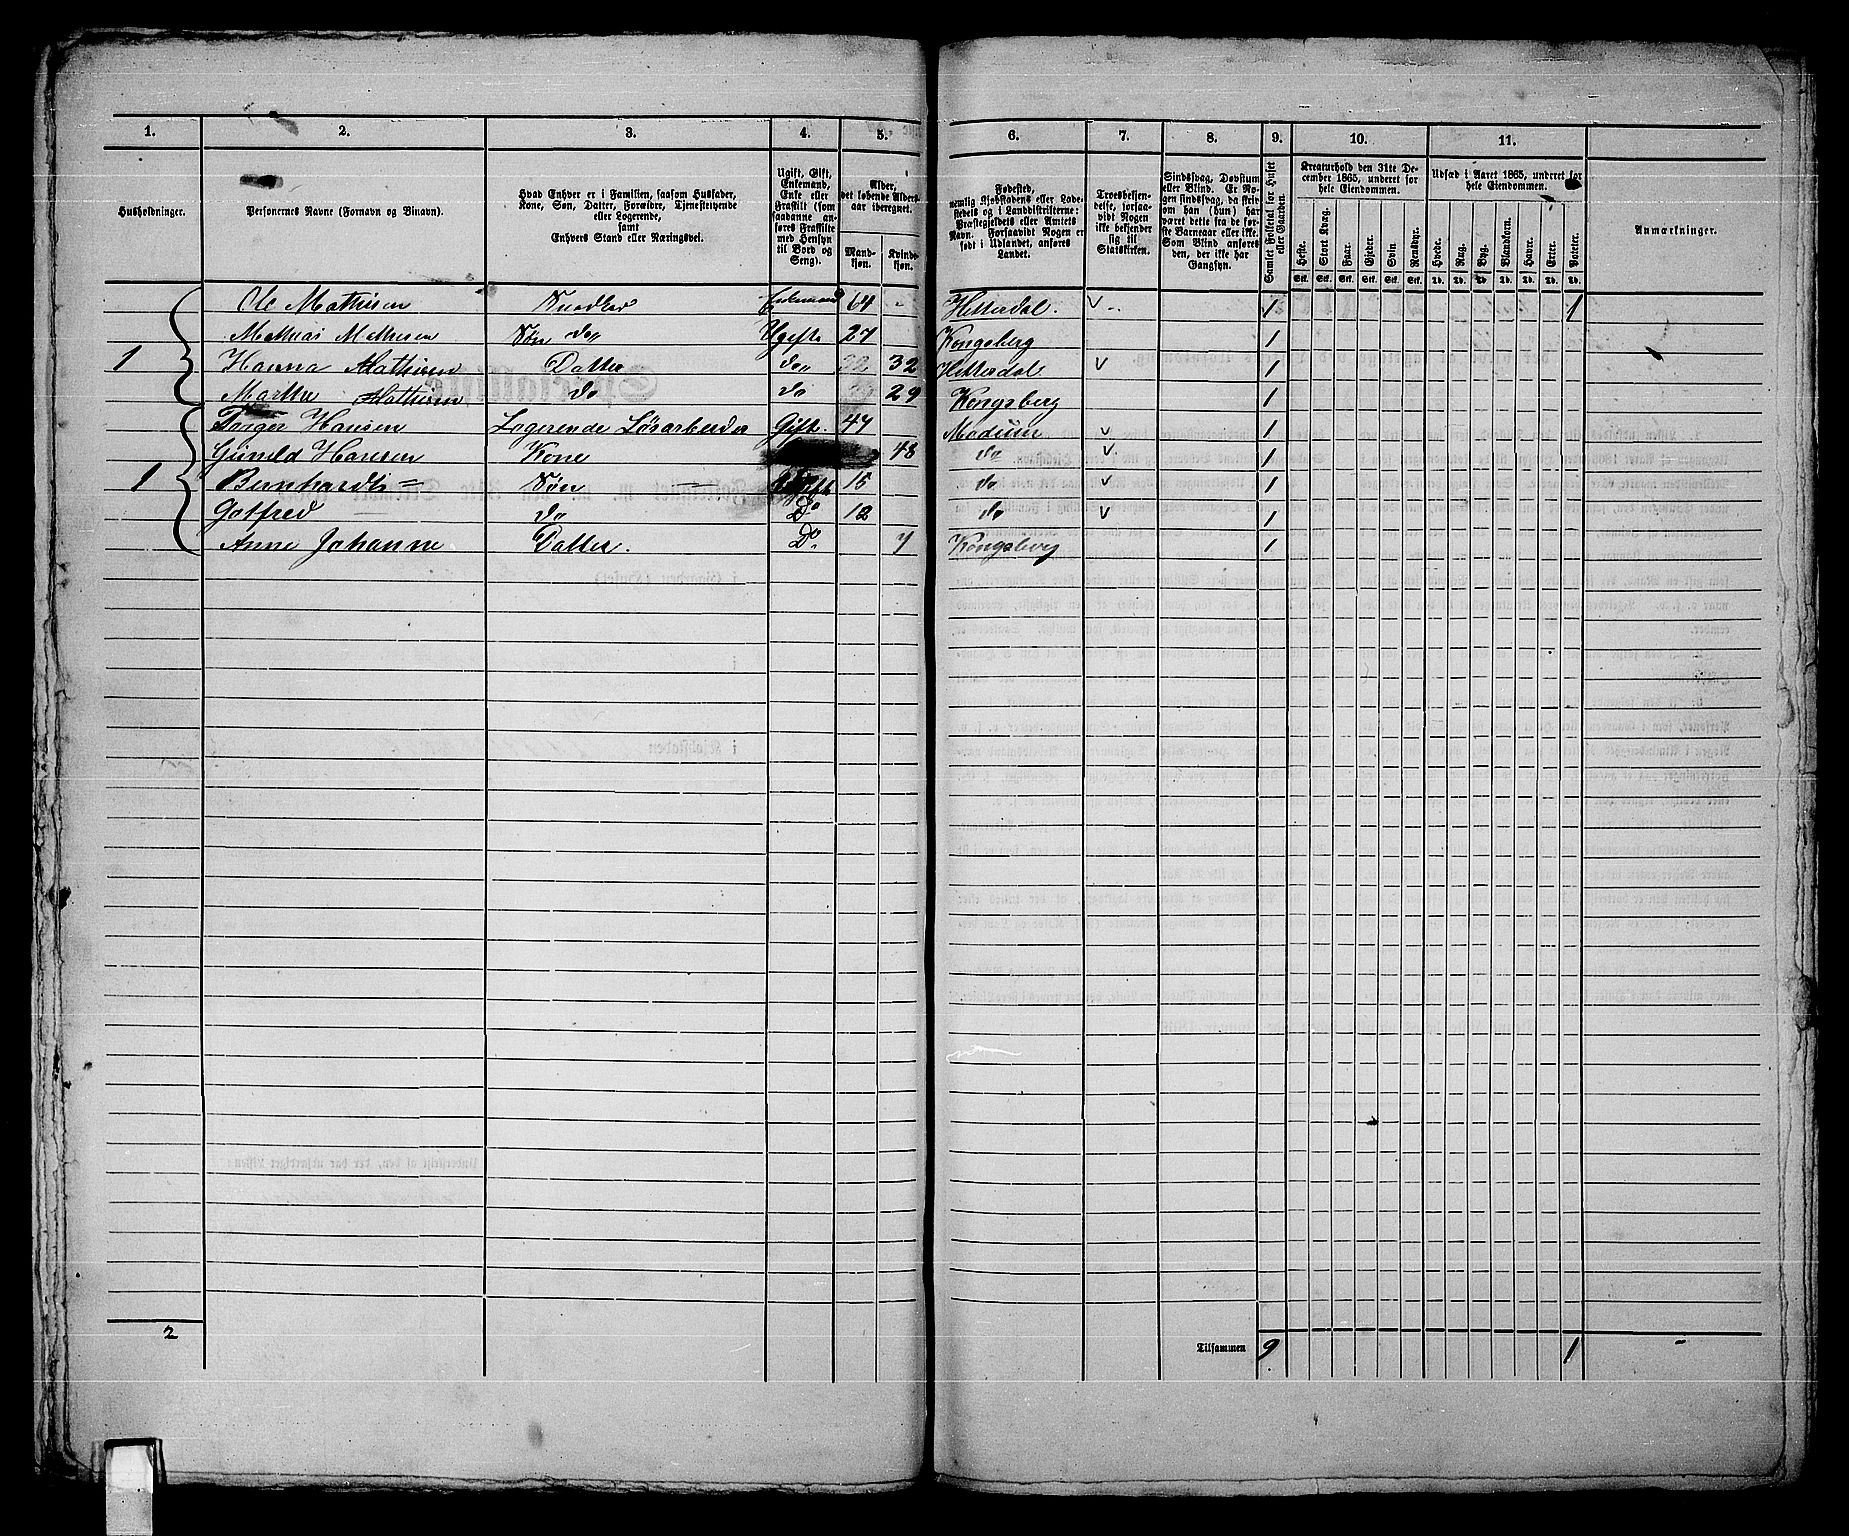 1. 2. 3. 4. 5. 6. 7. 8. 9. 10. 11.
Husholdninger.
Personernes Navne (Fornavn og Binavn).
Hvad Enhver er i Familien, saasom Husfader, Kone, Søn, Datter, Forældre, Tjenestetyende eller Logerende, samt Enhvers Stand eller Næringsvei.
Ugift, Gift, Enkemand, Enke eller Fraskilt (som saadanne anføres Fraskilte med Hensyn til Bord og Seng).
Alder, det løbende Alders-aar iberegnet.
Mand-kjøn. Kvinde-kjøn.
Fødested, nemlig Kjøbstadens eller Ladestedets og i Landdistrikterne: Præstegjeldets eller Amtets Navn. Forsaavidt Nogen er født i Udlandet, anføres Landet.
Troesbekjendelse, forsaavidt Nogen ikke bekjender sig til Statskirken.
Sindssvag, Døvstum eller Blind. Er Nogen sindssvag, da skrives om han (hun) har været dette fra de første Barneaar eller ikke. Som Blind anføres den, der ikke har Gangsyn.
Samlet Folketal for Huset eller Gaarden.
Kreaturhold den 31te December 1865, underet for hele Eiendommen.
Heste. Stort Kvæg. Faar. Gjeder. Svin. Rensdyr.
Udsæd i Aaret 1865, underet for hele Eiendommen.
Hvede. Rug. Byg. Blandkorn. Havre. Erter. Poteter.
Stk. Stk. Stk. Stk. Stk. Stk. Td. Td. Td. Td. Td. Td. Td.
Anmærkninger.
Ole Mathisen Enkemand 64 - Hitterdal. v 1 1
Mathias Mathisen Søn do Ugift 27 Kongsberg 1
1 Hanna Mathisen Datter do 32 Hitterdal v 1
Marthe Mathisen do do 29 Kongsberg 1
Torger Hansen Logerende Løsarbeider Gift. 47 Modum v 1
Gunild Hansen Kone 48 do v 1
1 Bernhardt = Søn Ugift 15 do v 1
Gotfred do Do 12 do v 1
Anne Johanne Datter. Do. 7 Kongsberg 1
2
Tilsammen 9 1 -